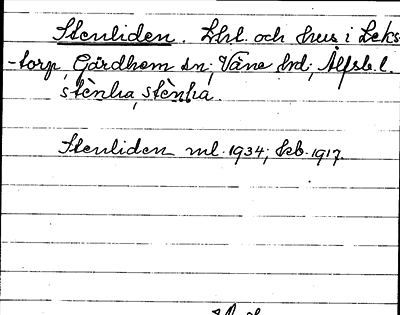 Stenliden. Lht. och hus i Leks-
-torp, Gärdhem sn; Väne hd; Älfsb. l.
stènlia, stènlia.
Stenliden ml. 1934; kb. 1917.